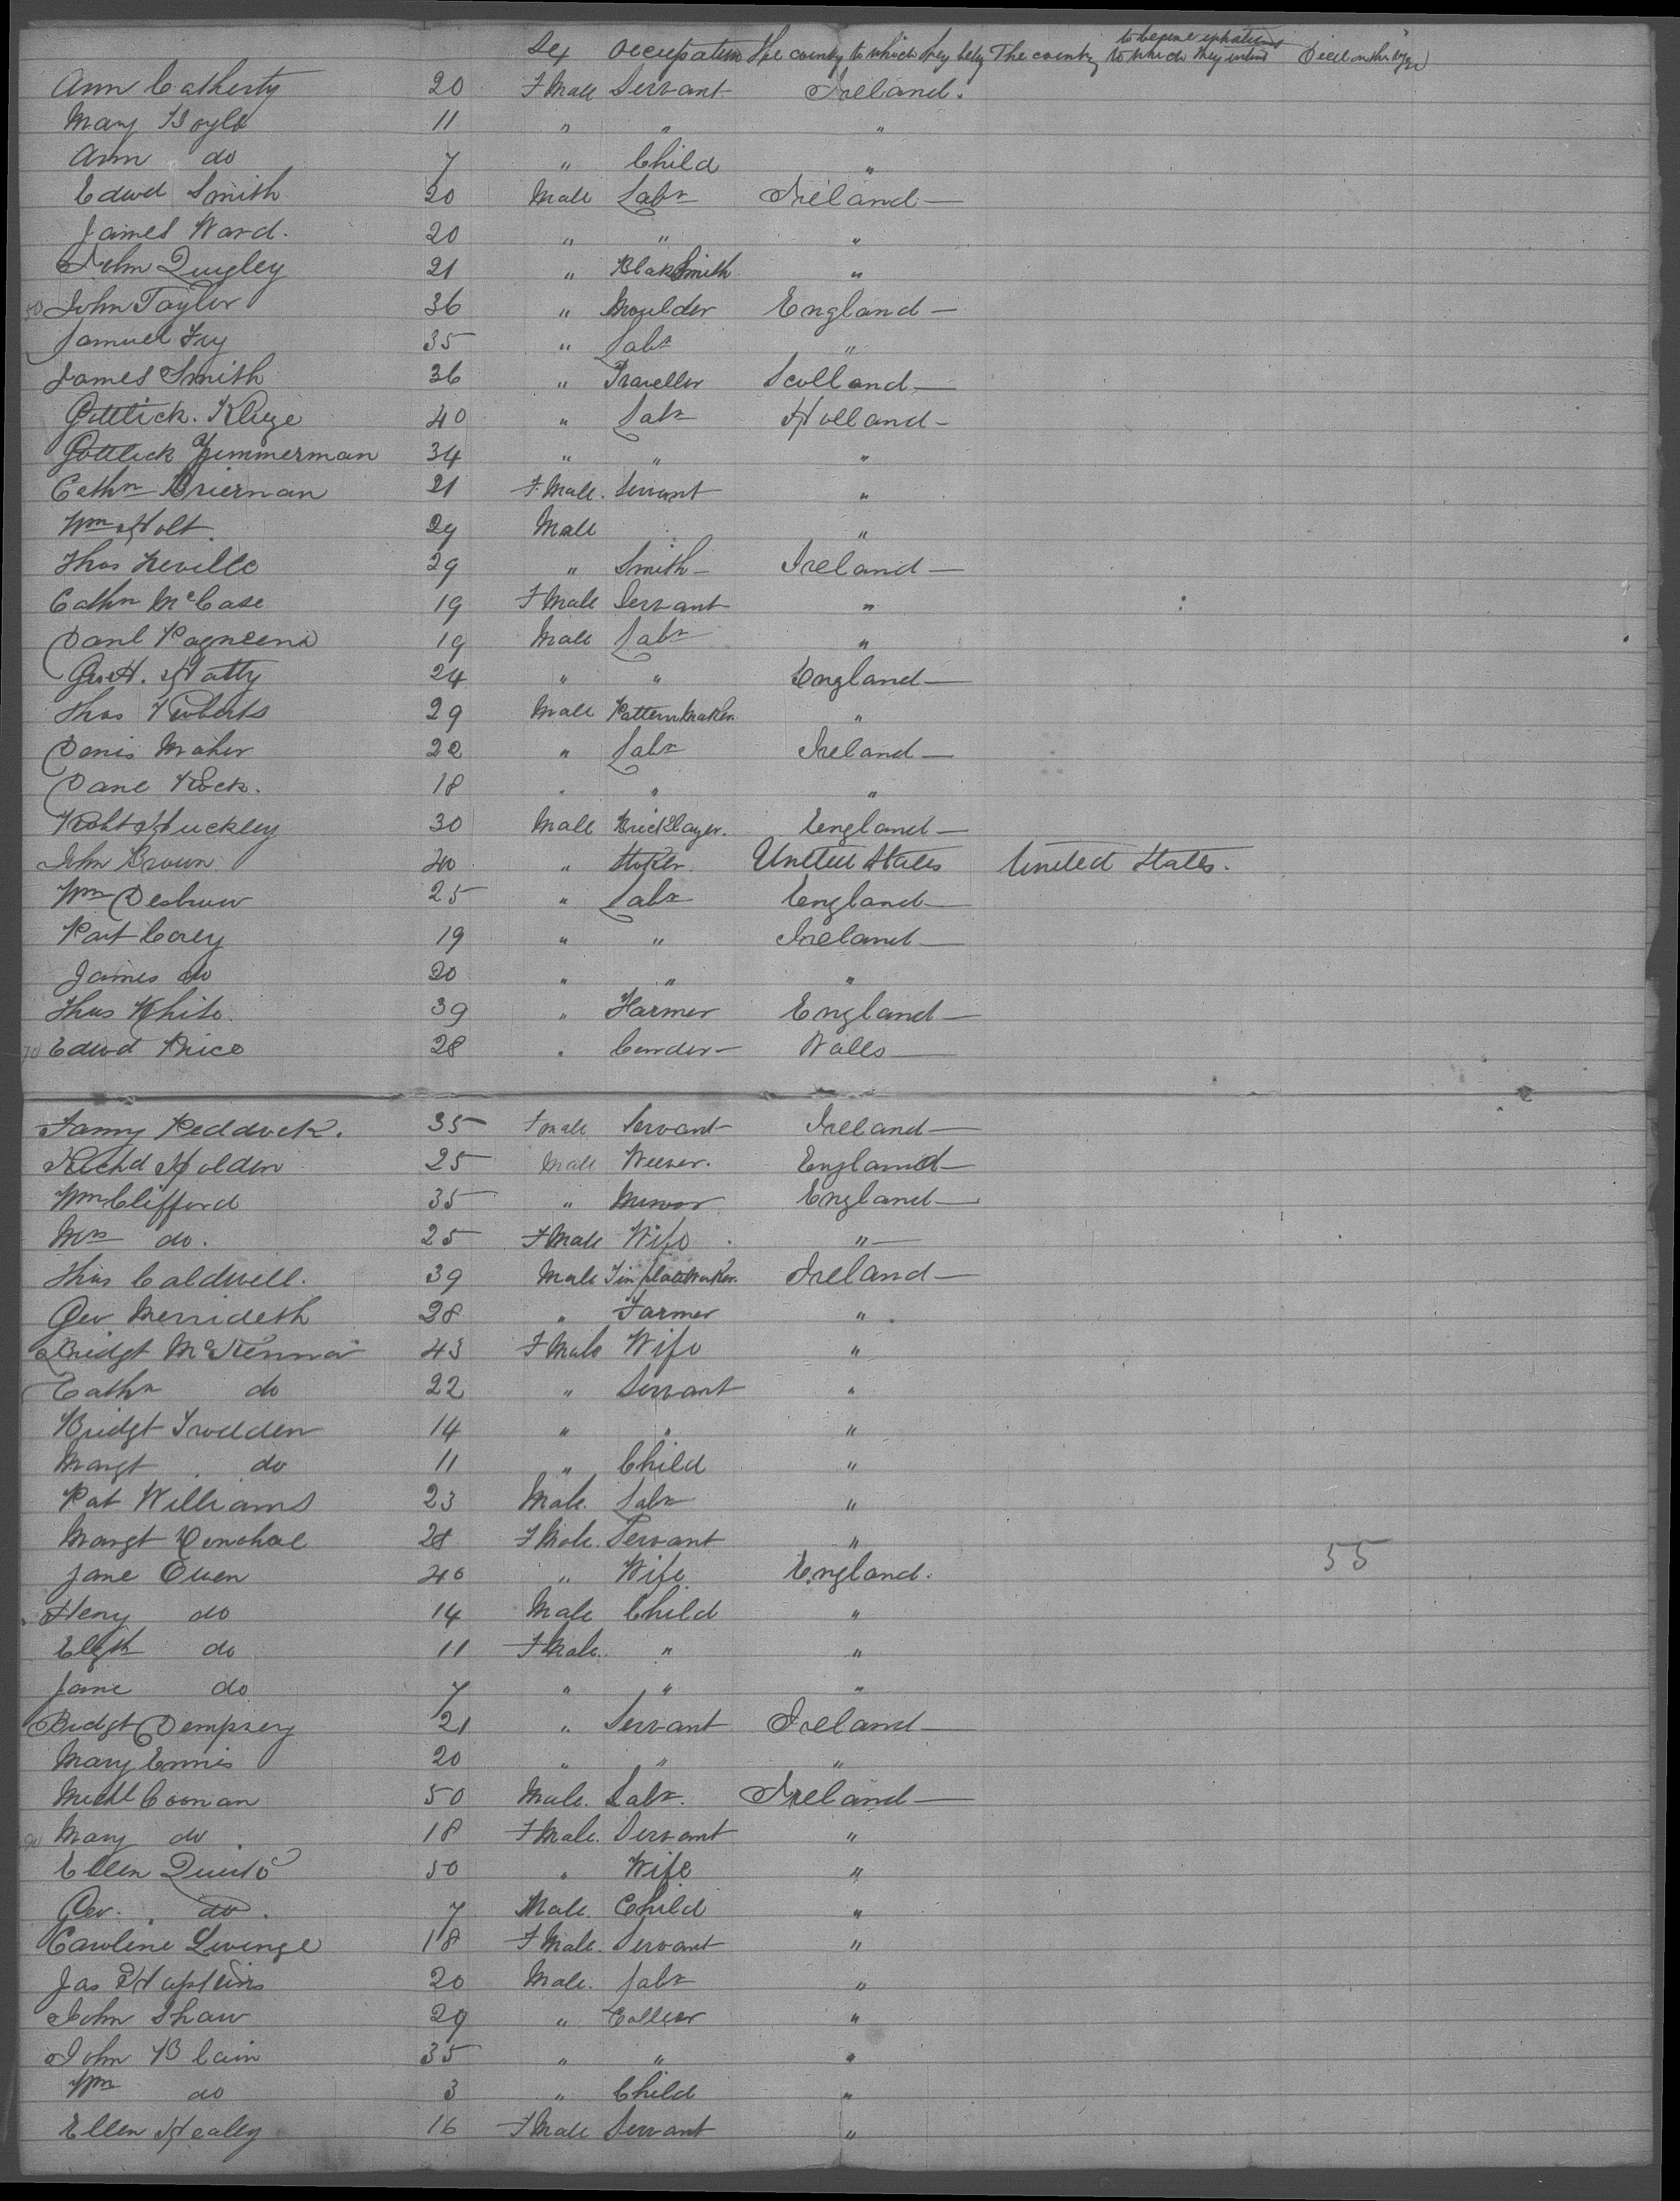 Sex Occupation The country to which they belg The country to which they intend to become inhabitants Died on the Voyge
Ann Catherty 20 F Male Servant Ireland.
Mary Boyle 11 " " "
Ann do 7 " Child "
Edwd Smith 20 Male Labr Ireland —
James Ward. 20 " " "
John Quigley 21 " BlakSmith "
50 John Taylor 36 " Moulder England —
Samuel Fry 35 " Labr "
James Smith 36 " Traveller Scotland —
Gottlick. Kluge 40 " Labr Holland —
Gottlick Zimmerman 34 " " "
Cathn Brierman 21 F Male. Servant "
Wm Holt. 29 Male "
Thos Neville 29 " Smith — Ireland —
Cathn McCase 19 F Male Servant "
Danl 19 Male Labr "
Geo H. Hatty 24 " " England —
Thos Roberts 29 Male PatternMaker "
Denis Maher 22 " Labr Ireland —
Dane Rock. 18 " " "
Robt Huckley 30 Male BrickLayer. England —
John Brown 40 " Stoker. United States United States.
Wm 25 " Labr England —
Pat Corey 19 " " Ireland —
James do 20 " " "
Thos White. 39 " Farmer England —
70 Edwd Price 28 " Walls —
Fanny Peddock. 35 Fmale Servant Ireland —
Richd Holden 25 Male Weever. England —
Wm Clifford 35 " England —
Mrs do. 25 F Male Wife " —
Thos Caldwell. 39 Male Tin plateWorker. Ireland —
Geo Merrideth 28 " Farmer "
Bridgt McKenna 43 F Male Wife "
Cathn do 22 " Servant "
Bridgt Trodden 14 " " "
Margt do 11 " Child "
Pat Williams 23 Male. Labr "
Margt Donohoe 28 F Male. Servant "
Jane Owen 40 " Wife England. 55
Heny do 14 Male Child "
Elizth do 11 F Male. " "
Jane do 7 " " "
Bridgt Dempsey 21 " Servant Ireland —
Mary Ennis 20 " " "
Michl Coonan 50 Male. Labr. Ireland —
90 Mary do. 18 F Male. Servant "
Ellen 50 " Wife "
Geo. do. 7 Male. Child "
Caroline Levinge 18 F Male. Servant "
Jas Hopkins 20 Male. Labr "
John Shaw 29 " Collier "
John Blain 35 " " "
Wm do 3 " Child "
Ellen Healey 16 F Male Servant "